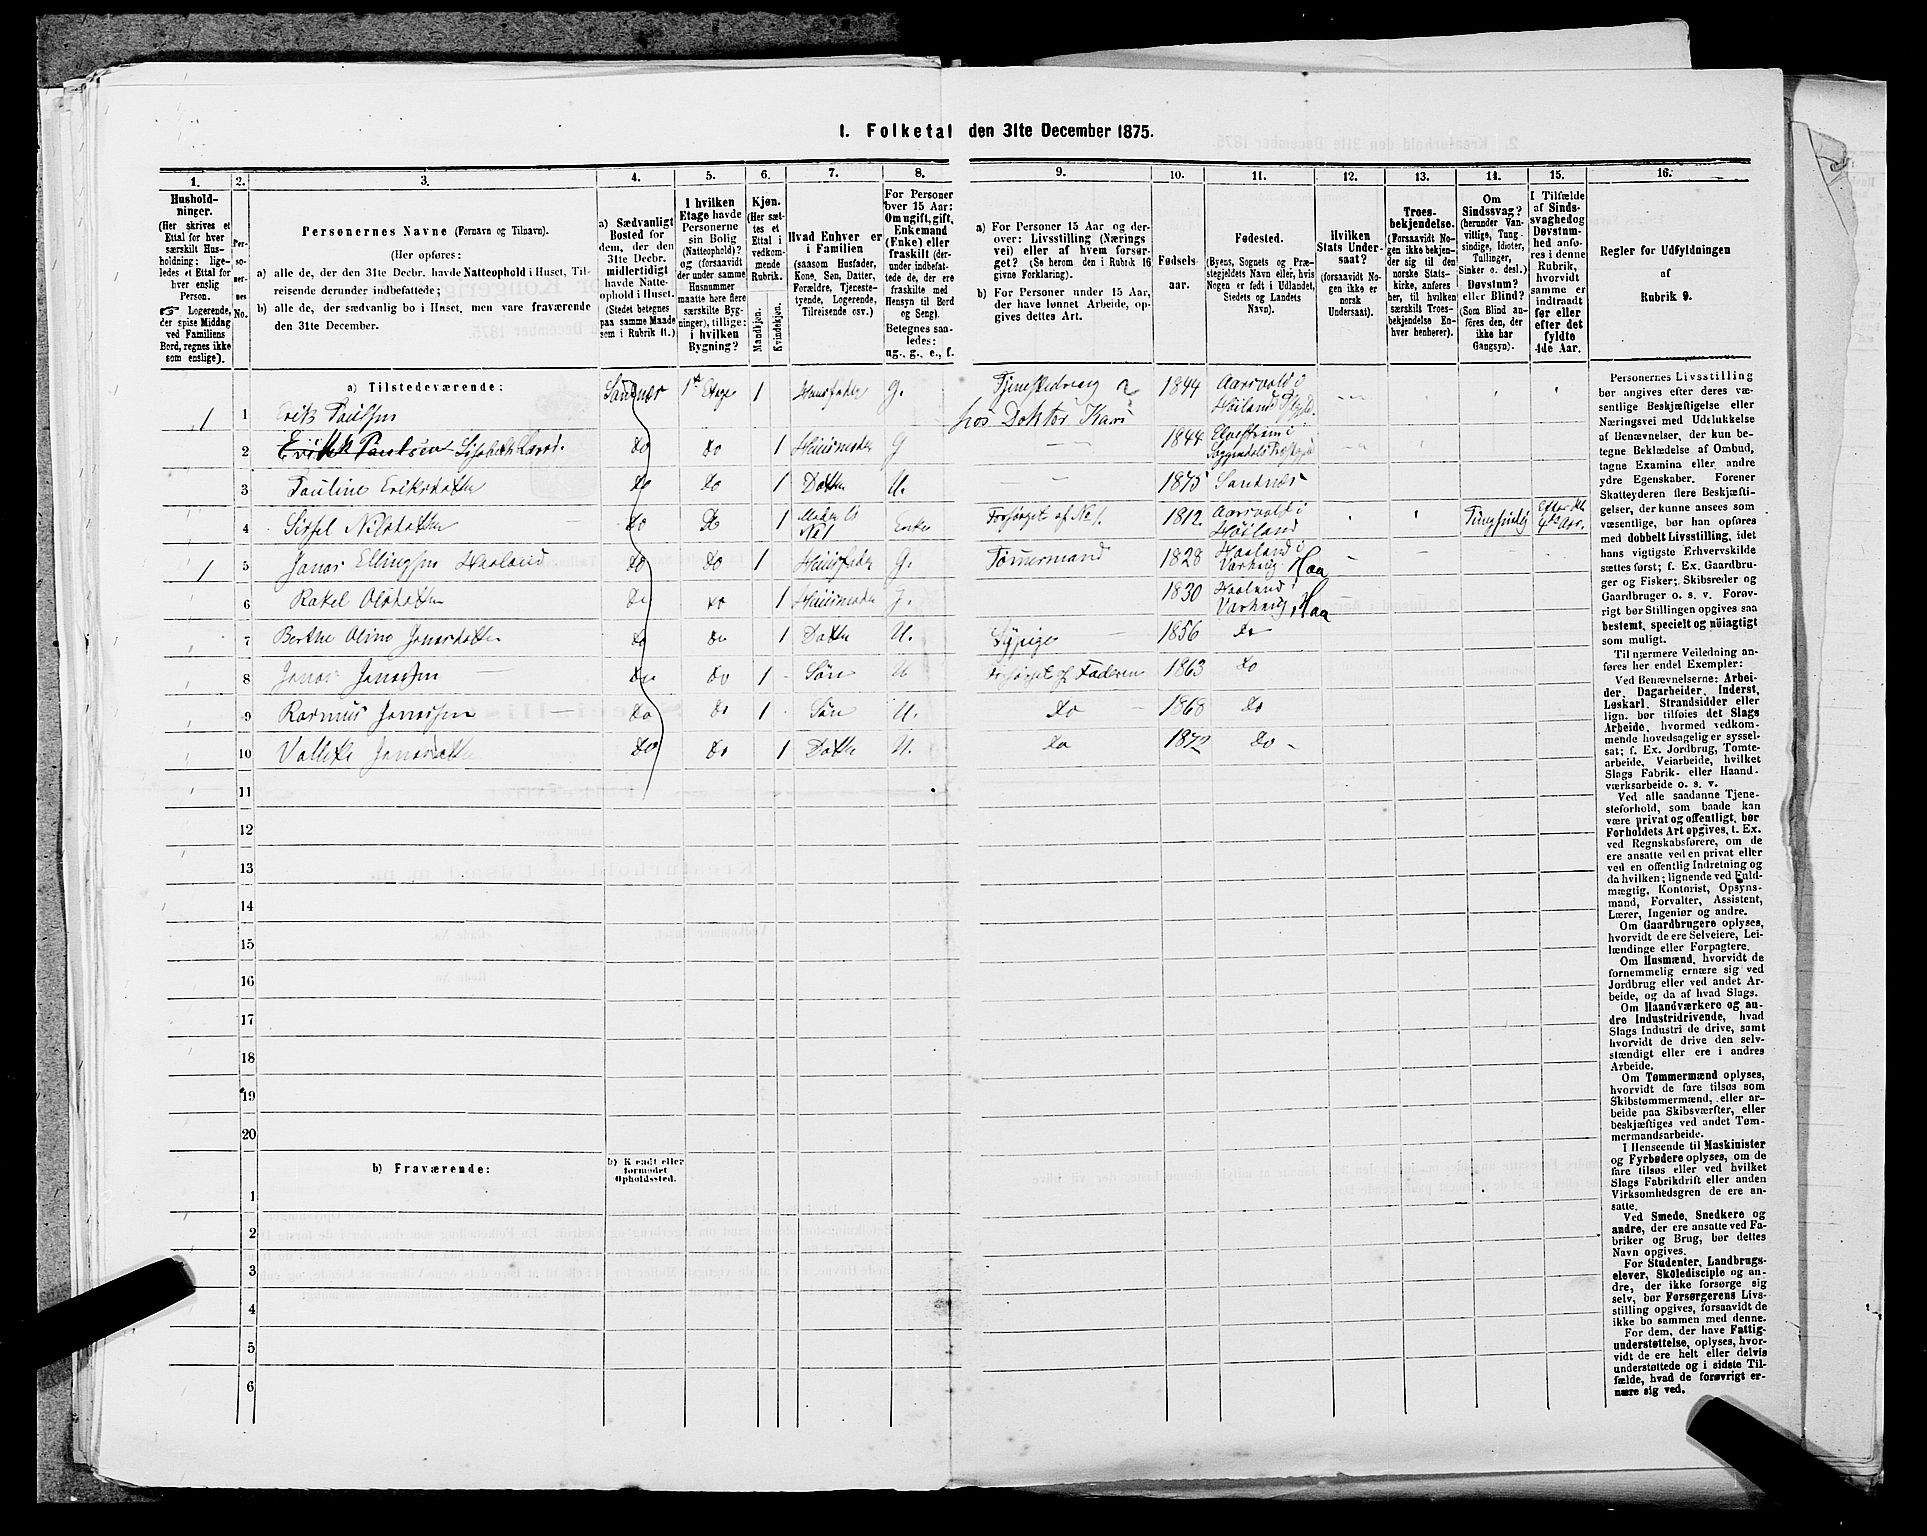 I. Folketal den 31te December 1875.
1. 2. 3. 4. 5. 6. 7. 8. 9. 10. 11. 12. 13. 14. 15. 16.
Hushold-
ninger.
(Her skrives et
Ettal for hver
særskilt Hus-
holdning; lige-
ledes et Ettal for
hver enslig
Person.
☞ Logerende,
der spise Middag
ved Familiens
Bord, regnes ikke
som enslige).
Per-
so-
ner-
nes
No.
Personernes Navne (Fornavn og Tilnavn).
(Her opføres:
a) alle de, der den 31te Decbr. havde Natteophold i Huset, Til-
reisende derunder indbefattede;
b) alle de, der sædvanlig bo i Huset, men vare fraværende
den 31te December.
a) Sædvanligt
Bosted for
dem, der den
31te Decbr.
midlertidigt
havde Natte-
ophold i Huset.
(Stedet betegnes
paa samme Maade
som i Rubrik 11.)
I hvilken
Etage havde
Personerne
sin Bolig
(Natteophold)?
og (forsaavidt
der under samme
Husnummer
maatte høre flere
særskilte Byg-
ninger), tillige:
i hvilken
Bygning?
Kjøn.
(Her sæt-
tes et
Ettal i
vedkom-
mende
Rubrik.
Mandkjøn.
Kvindekjøn.
Hvad Enhver er
i Familien
(saasom Husfader,
Kone, Søn, Datter,
Forældre, Tjeneste-
tyende, Logerende,
Tilreisende osv.)
For Personer
over 15 Aar:
Om ugift, gift,
Enkemand
(Enke) eller
fraskilt (der-
under indbefat-
tede de, der ere
fraskilte med
Hensyn til Bord
og Seng).
Betegnes saa-
ledes:
ug., g., e., f.
a) For Personer 15 Aar og der-
over: Livsstilling (Nærings
vei) eller af hvem forsør-
get? (Se herom den i Rubrik 16
givne Forklaring).
b) For Personer under 15 Aar,
der have lønnet Arbeide, op-
gives dettes Art.
Fødsels-
aar.
Fødested.
(Byens, Sognets og Præ-
stegjeldets Navn eller, hvis
Nogen er født i Udlandet,
Stedets og Landets
Navn).
Hvilken
Stats Under-
saat?
(forsaavidt No-
gen ikke er
norsk
Undersaat).
Troes-
bekjendelse.
(Forsaavidt No-
gen ikke bekjen-
der sig til den
norske Stats-
kirke, anføres
her, til hvilken
særskilt Troes-
bekjendelse En-
hver henhører).
Om
Sindssvag?
(herunder Van-
vittige, Tung-
sindige, Idioter,
Tullinger,
Sinker o. desl.)
Døvstum?
eller Blind?
(Som Blind an-
føres den, der
ikke har
Gangsyn).
I Tilfælde
af Sinds-
svaghed og
Døvstum-
hed anfø-
res i denne
Rubrik,
hvorvidt
samme er
indtraadt
før eller
efter det
fyldte
4de Aar.
Regler for Udfyldningen
af
Rubrik 9.
a) Tilstedeværende:
1 1 Erik Paulsen Sandnæs 1ste Etage 1 Huusfader G. hos Doktor 1844 Aarsvold i Høiland
2 Erik Paulsen Lisabeth Do Do 1 Huusmoder G 1844
3 Pauline Eriksdatter Do Do 1 Datter U. 1875 Sandnæs
4 Sissel Nilsdatter Do Do 1 Moder til No 1 Enke Forsørget af No 1. 1812. Aarsvold i Høiland Tungsindig efter det 4de Aar.
1 5 Jonas Ellingsen Haaland Do Do 1 Huusfader G. Tømmermand 1828 Haaland i Varhoug Haa
6 Rakel Olsdatter Do Do 1 Huusmoder G. 1830 Haaland i Varhoug Haa
7 Berthe Oline Jonasdatter Do Do 1 Datter U. Sypige 1856 Do
8 Jonas Jonassen Do Do 1 Søn U Forsørget af Faderen 1863 Do
9 Rasmus Jonassen Do Do 1 Søn U. Do 1868 Do
10 Jonasdatter Do Do 1 Datter U. Do 1872 Do
11
12
13
14
15
16
17
18
19
20
b) Fraværende:
b) Kendt eller
formodet
Opholdssted.
1
2
3
4
5
6
Personernes Livsstilling
bør angives efter deres væ-
sentlige Beskjæftigelse eller
Næringsvei med Udelukkelse
af Benævnelser, der kun be-
tegne Beklædelse af Ombud,
tagne Examina eller andre
ydre Egenskaber. Forener
Skatteyderen flere Beskjæfti-
gelser, der kunne ansees som
væsentlige, bør han opføres
med dobbelt Livsstilling, idet
hans vigtigste Erhvervskilde
sættes først; f. Ex. Gaardbru-
ger og Fisker; Skibsreder og
Gaardbruger o. s. v. Forøv-
rigt bør Stillingen opgives saa
bestemt, specielt og nøiagtigt
som muligt.
Til nærmere Veiledning an-
føres her endel Exempler:
Ved Benævnelserne: Arbei-
der, Dagarbeider, Inderst,
Løskarl, Strandsidder eller
lign. bør tilføies det Slags
Arbeide, hvormed vedkom-
mende hovedsagelig er syssel-
sat; f. Ex. Jordbrug, Tomte-
arbeide, Veiarbeide, hvilket
Slags Fabrik- eller Haand-
værksarbeide o. s. v.
Ved alle saadanne Tjene-
steforhold, som baade kan
være privat og offentligt, bør
Forholdets Art opgives, t. Ex.
ved Regnskabsførere, om de
ere ansatte ved en privat eller
ved en offentlig Indretning og
da hvilken; lignende ved Fuld-
mægtig, Kontorist, Opsyns-
mand, Forvalter, Assistent,
Lærer, Ingeniør og andre.
Om Gaardbrugere oplyses,
hvorvidt de ere Selveiere, Lei-
lændinge eller Forpagtere.
Om Husmænd, hvorvidt de
fornemmelig ernære sig ved
Jordbrug eller ved andet Ar-
beide, og da af hvad Slags.
Om Haandværkere og an-
dre Industridrivende, hvad
Slags Industri de drive, samt
hvorvidt de drive den selv-
stændigt eller ere i andres
Arbeide.
Om Tømmermænd oplyses,
hvorvidt de fare tilsøs som
Skibstømmermænd, eller ar-
beide paa Skibsværfter, eller
beskjæftiges ved andet Tøm-
mermandsarbeide.
I Henseende til Maskinister
og Fyrbødere oplyses, om de
fare tilsøs eller ved hvilket
Slags Fabrikdrift eller anden
Virksomhedsgren de ere an-
satte.
Ved Smede, Snedkere og
andre, der ere ansatte ved Fa-
briker og Brug, bør dettes
Navn opgives.
For Studenter, Landbrugs-
elever, Skoledisciple og an-
dre, der ikke forsørge sig
selv, bør Forsørgerens Livs-
stilling opgives, forsaavidt de
ikke bo sammen med denne.
For dem, der have Fattig-
understøttelse, oplyses, hvor-
vidt de ere helt eller delvis
understøttede og i sidste Til-
fælde, hvad de forøvrigt er-
nære sig ved.